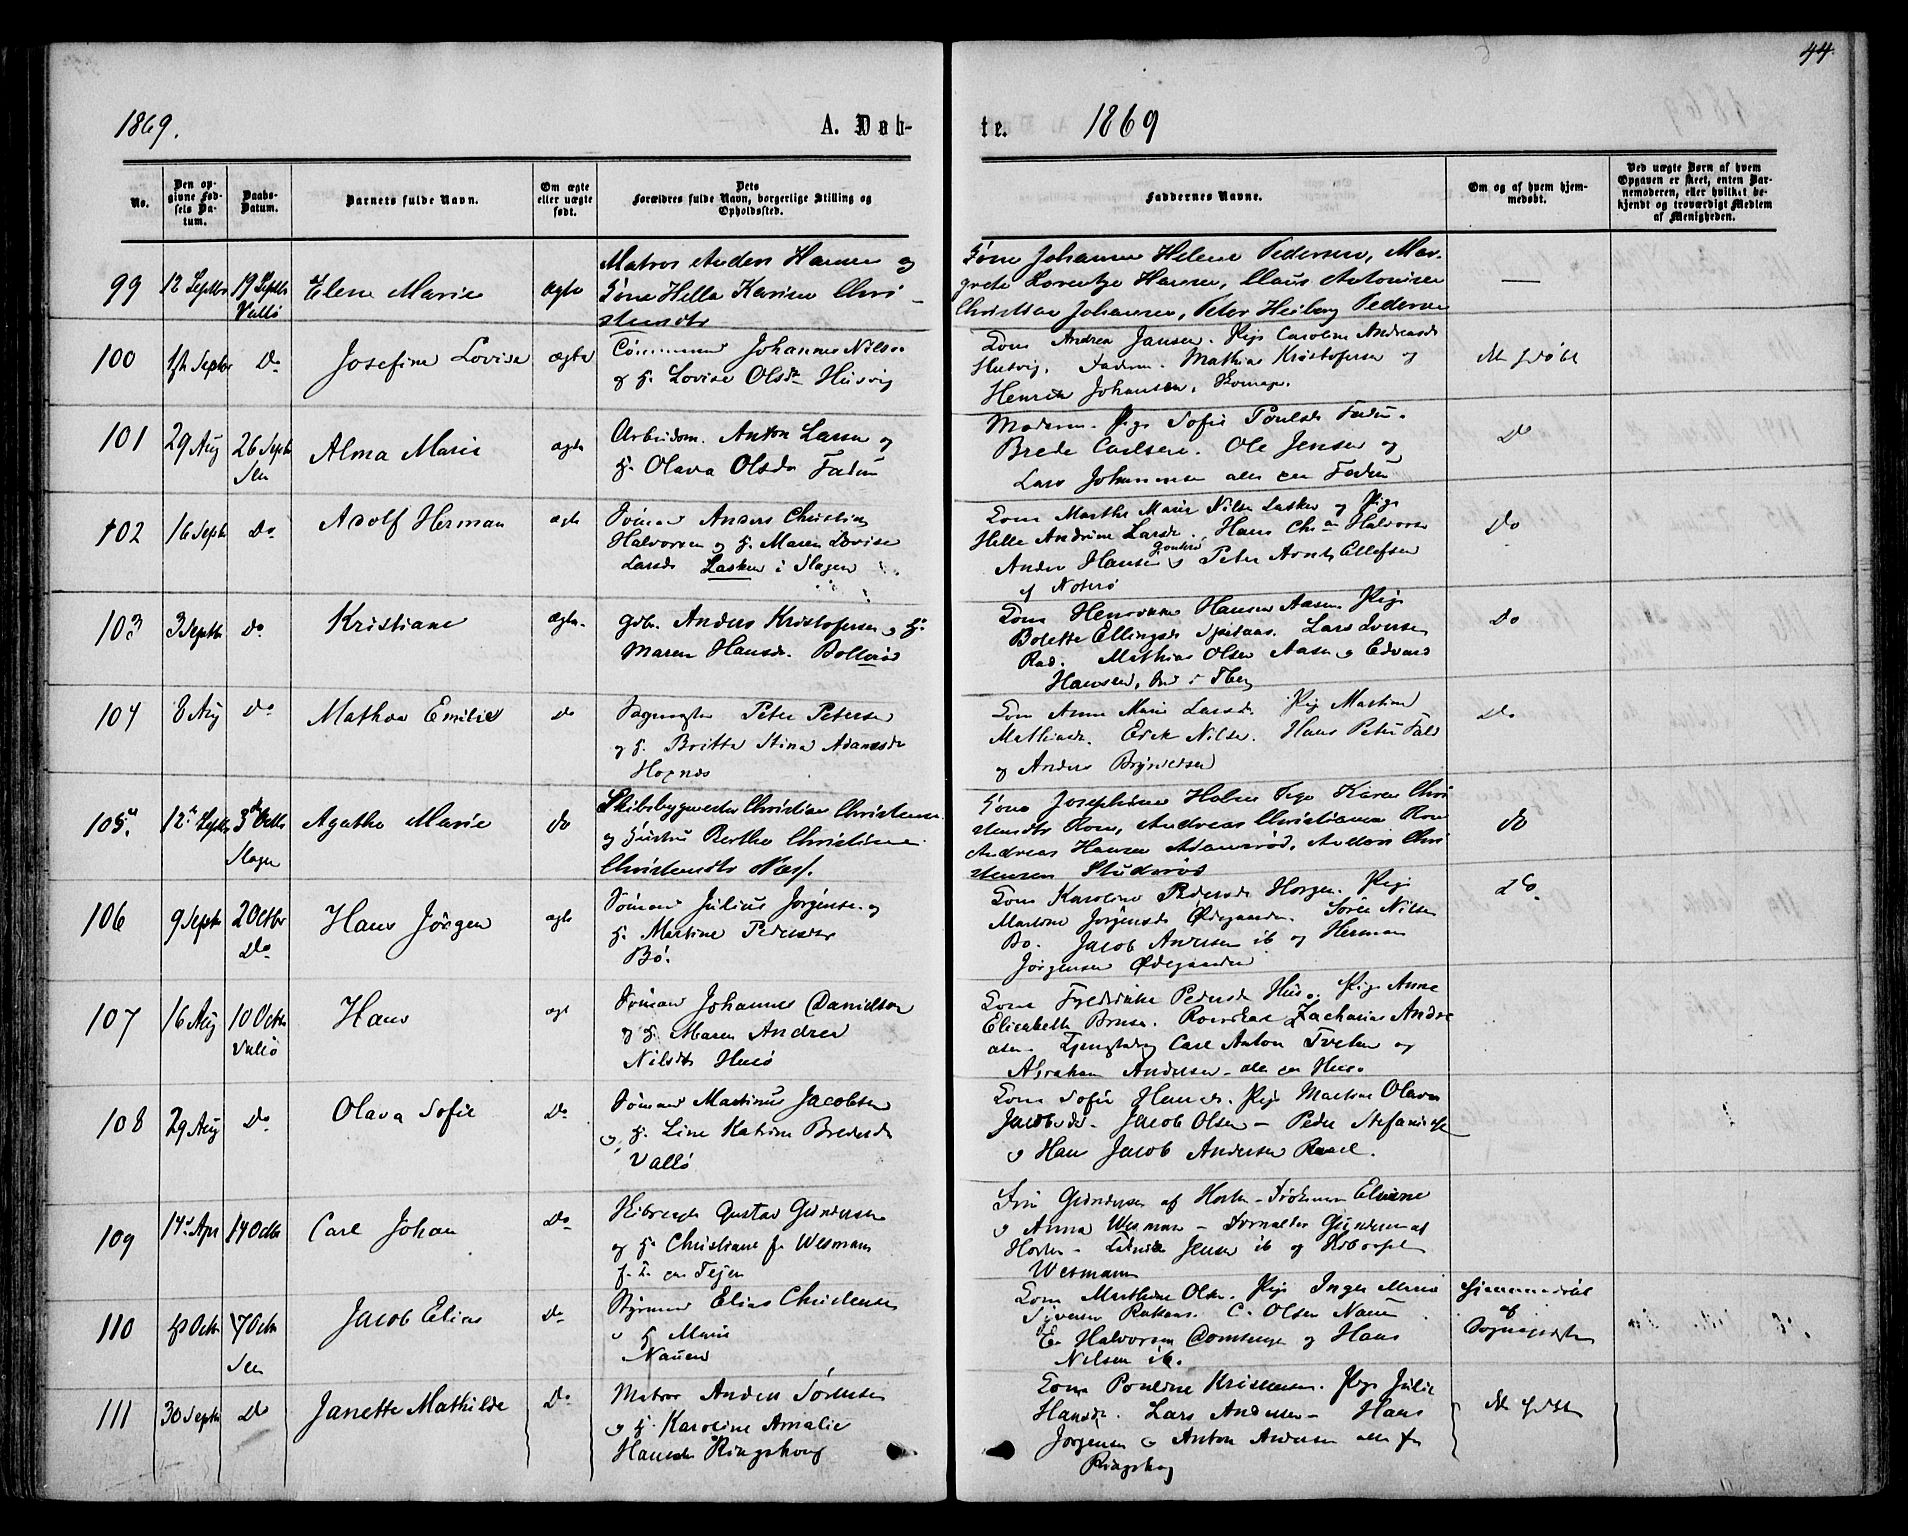 44.
1869.
A. Døb-
te.
1869
No.
Den op-
givne Fød-
sels Da-
tum.
Daabs-
Datum.
Barnets fulde Navn.
Om ægte
eller uægte
født.
Dets
Forældres fulde Navn, borgerlige Stilling og
Opholdssted.
Faddernes Navne.
Om og af hvem hjem-
medøbt.
Ved uægte Børn af hvem
Opgaven er skeet, enten Bar-
nemoderen, eller hvilket be-
kjendt og troværdigt Medlem
af Menigheden.
99
12 Septbr
19 Septbr
Vallø
Elene Marie
ægte
Matros Anders Hansen og
Kone Hella Karine Chri-
stensdtr
Kone Johanne Helene Pedersen, Mar-
grete Lorentze Hansen, Claus Antonisen
Christian Johansen, Peter Heiberg Pedersen
—
100
Septbr
Do
Josefine Lovise
ægte
Johannes Nilsen
og H. Lovise Olsdr Husvig
Kone Andrea Jansen. Pige Caroline Andreasdr
Husvig. Faderen. Mathias Kristofersen og
Henrik Johansen,
101
29 Aug
26 Septbr
Sem
Alma Marie
ægte
Arbeidsm. Anton Larsen og
H. Olava Olsdr Fadum
Moderen. Pige Sofie Poulsdr Fadum.
Brede Carlsen. Ole Jensen og
Lars Johannesen alle paa Fadum
Do
102
16 Septbr
Do
Adolf Herman
ægte
Sømand Anders Christian
Halvorsen og H. Maren Lovise
Larsdr Lasken i Slagen
Kone Marthe Marie Nilsen Lasken og Pige
Helle Andrine Larsdr. Hans Chr. Halvorsen
Anders Hansen og Peter Arnt Ellefsen
af Nøterø
Do
103
3 Septbr
Do
Kristiane
ægte.
Gdbr. Anders Kristofersen og H.
Maren Hansdr. Bollerød
Kone Hansen Aasen. Pige
Bolette Ellingsdr. Lars Iversen
Rad. Mathias Olsen Aasen og Edvard
Hansen,
Do
104
8 Aug
Do
Mathea Emilie
Do
Peter Petersen
og H. Britta Stina Adamsdr
Hognæs
Kone Anne Marie Larsdr. Pige Martine
Mathisdr. Erik Nilsen. Hans Peter
og Anders Bryntesen
Do
105.
12 Septbr
3 Octbr
Slagen
Agathe Marie
do
Skibsbygmester Christian Christensen
og Hustru Berthe Christine
Christensdtr Næs.
Kone Josephine Holm Pige Karen Chri
stensdtr Rom, Andreas Christiansen Rom
Andreas Hansen Adamsrød, Anders Chri
stensen Studerød
do
106
9 Septbr
20 Octbr
Do
Hans Jørgen
ægte
Sømand Julius Jørgensen og
H. Martine Pedersdr
Bø.
Kone Karoline Pedersdr Horgen. Pige
Martine Jørgensdr Ødegaarden. Søren Nilsen
Bø. Jacob Andersen ib og Herman
Jørgensen Ødegaarden
do.
107
16 Aug
10 Octbr
Vallø
Hans
ægt
Sømand Johannes Danielsen
og H. Maren Andrea
Nilsdtr Husø
Kone Fredrikke Pedersdr Husø. Pige Anne
Elisabeth Bruse. Zacharias Andre
asen. Carl Anton Tveten og
Abraham Andersen alle paa Husø
108
29 Aug
Do
Olava Sofie
Do
Sømand Martinus Jacobsen
og H. Line Katrine Bredesdr
Vallø
Kone Sofie Hansdr. Pige Martine Olava
Jacobsdr. Jacob Olsen – Peder Stefansen
og Hans Jacob Andersen Rael.
109
14 Apr
14 Octbr
Carl Johan
Do
Gustav Gundersen
og H. Christiane f. Wesmann
Fru Gundersen af Horten – Frøkenen Elvine
og Anna Wesmann – Gundersen af
Horten – Jensen ib og
Wesmann
110
Octbr
17 Octbr
Sem
Jacob Elias
Do
Styrmand Elias Christensen
og H. Marie
Nauen
Kone Mathilde Olsen. Pige Inger Marie
Syversen. C. Olsen Nauen
E. Halvorsen og Hans
Nilsen ib.
Hjemmedøbt
af
111
30 Septbr
Do
Janette Mathilde
Do
Matros Anders Sørensen
og H. Karoline Amalie
Hansdr Ringshoug
Kone Pouline Kristensen. Pige Julie
Hansdr. Lars Andersen – Hans
Jørgensen og Anton Andersen alle fra
Ringshoug